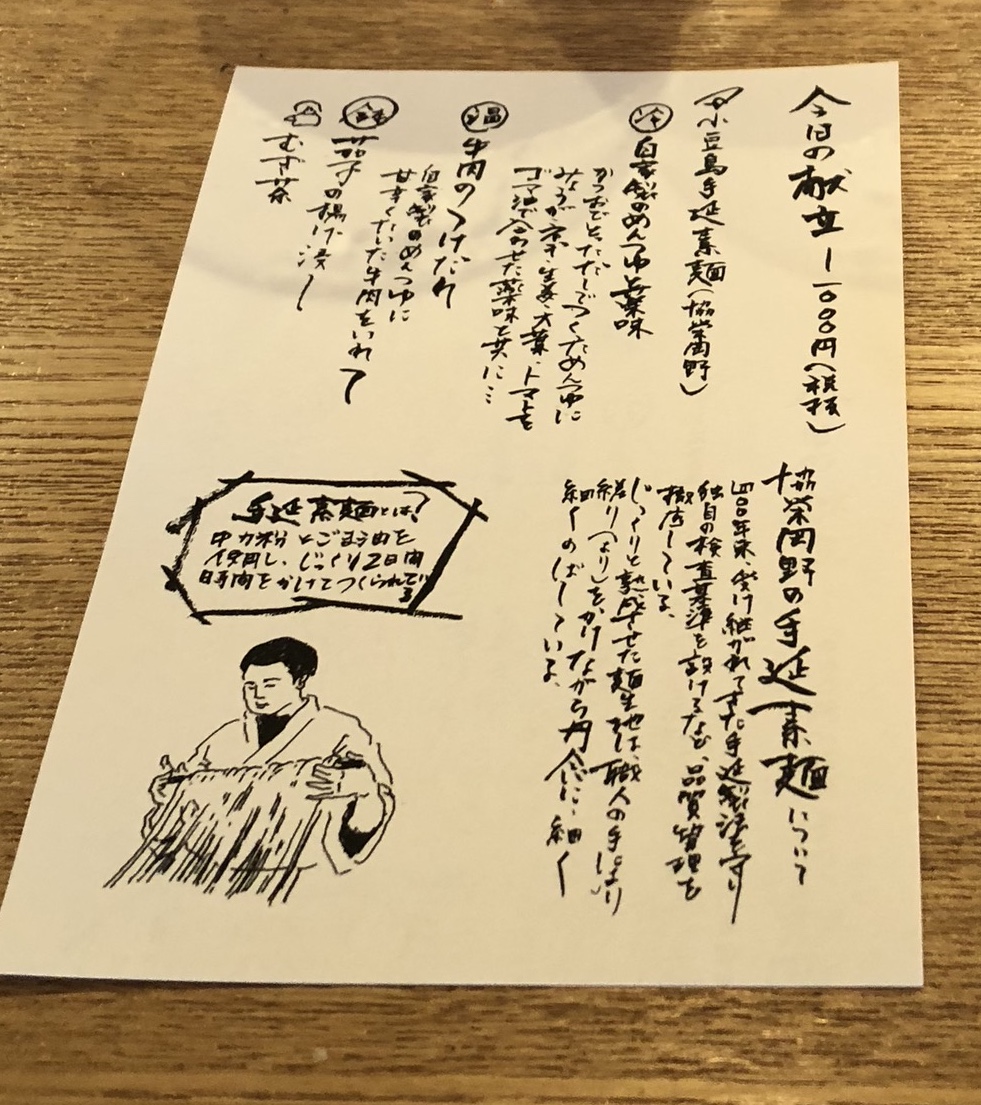 今日の献立 一一〇〇〇円（税抜）
小豆島手延素麺（協栄岡野）
冷 自家製のめんつゆと薬味
かつおぶしとだしでつくっためんつゆに
みょうが、ネギ、生姜、大葉、トマトを
ゴマ油で合わせた薬味と共に…
温 牛肉のつけだれ
自家製のめんつゆに
甘辛くたいた牛肉をいれて
茄子の揚げ浸し
むぎ茶
協栄岡野の手延素麺について
四〇〇年来、受け継がれてきた手延製法を守り
独自の検査基準を設けるなど、品質管理を
徹底している。
じっくりと熟成させた麺生地は、職人の手により
縒り（より）をかけながら丹念に、細く
細くのばしている。
手延素麺とは？
中力粉とごま油を
使用し、じっくり2日間
時間をかけてつくられている